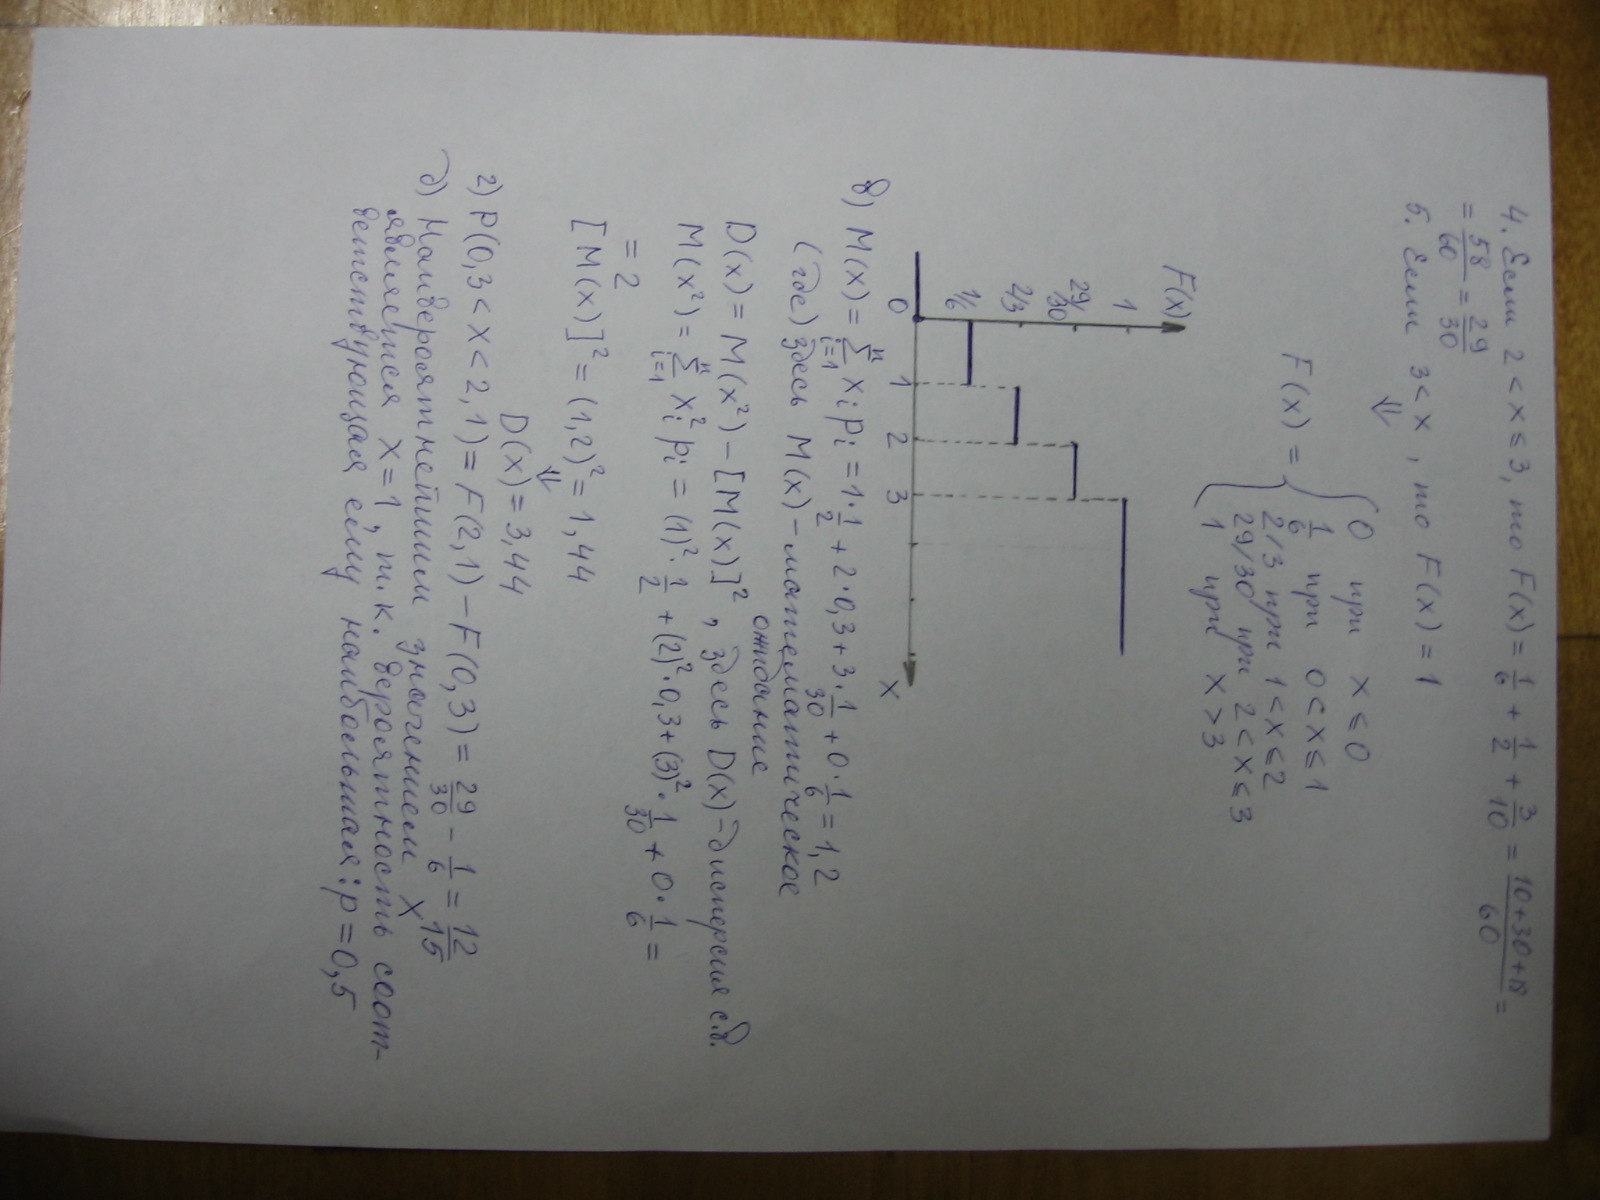 4. Если 2 < x ≤ 3, то F(x) = 1/6 + 1/2 + 3/10 = (10+30+18)/60 =
= 58/60 = 29/30
5. Если 3 < x, то F(x) = 1
⇓
F(x) = { 0 при x ≤ 0
1/6 при 0 < x ≤ 1
2/3 при 1 < x ≤ 2
29/30 при 2 < x ≤ 3
1 при x > 3
F(x)
1
29/30
2/3
1/6
0 1 2 3 x
в) M(x) = ∑ⁿᵢ₌₁ xᵢpᵢ = 1·1/2 + 2·0,3 + 3·1/30 + 0·1/6 = 1,2
(где) здесь M(x) – математическое
ожидание
D(x) = M(x²) – [M(x)]², здесь D(x) – дисперсия с.в.
M(x²) = ∑ⁿᵢ₌₁ xᵢ²pᵢ = (1)²·1/2 + (2)²·0,3 + (3)²·1/30 + 0·1/6 =
= 2
[M(x)]² = (1,2)² = 1,44
⇓
D(x) = 3,44
г) P(0,3 < x < 2,1) = F(2,1) – F(0,3) = 29/30 – 1/6 = 12/15
д) Наивероятнейшим значением X
является x = 1, т.к. вероятность соот-
ветствующая ему наибольшая: p = 0,5